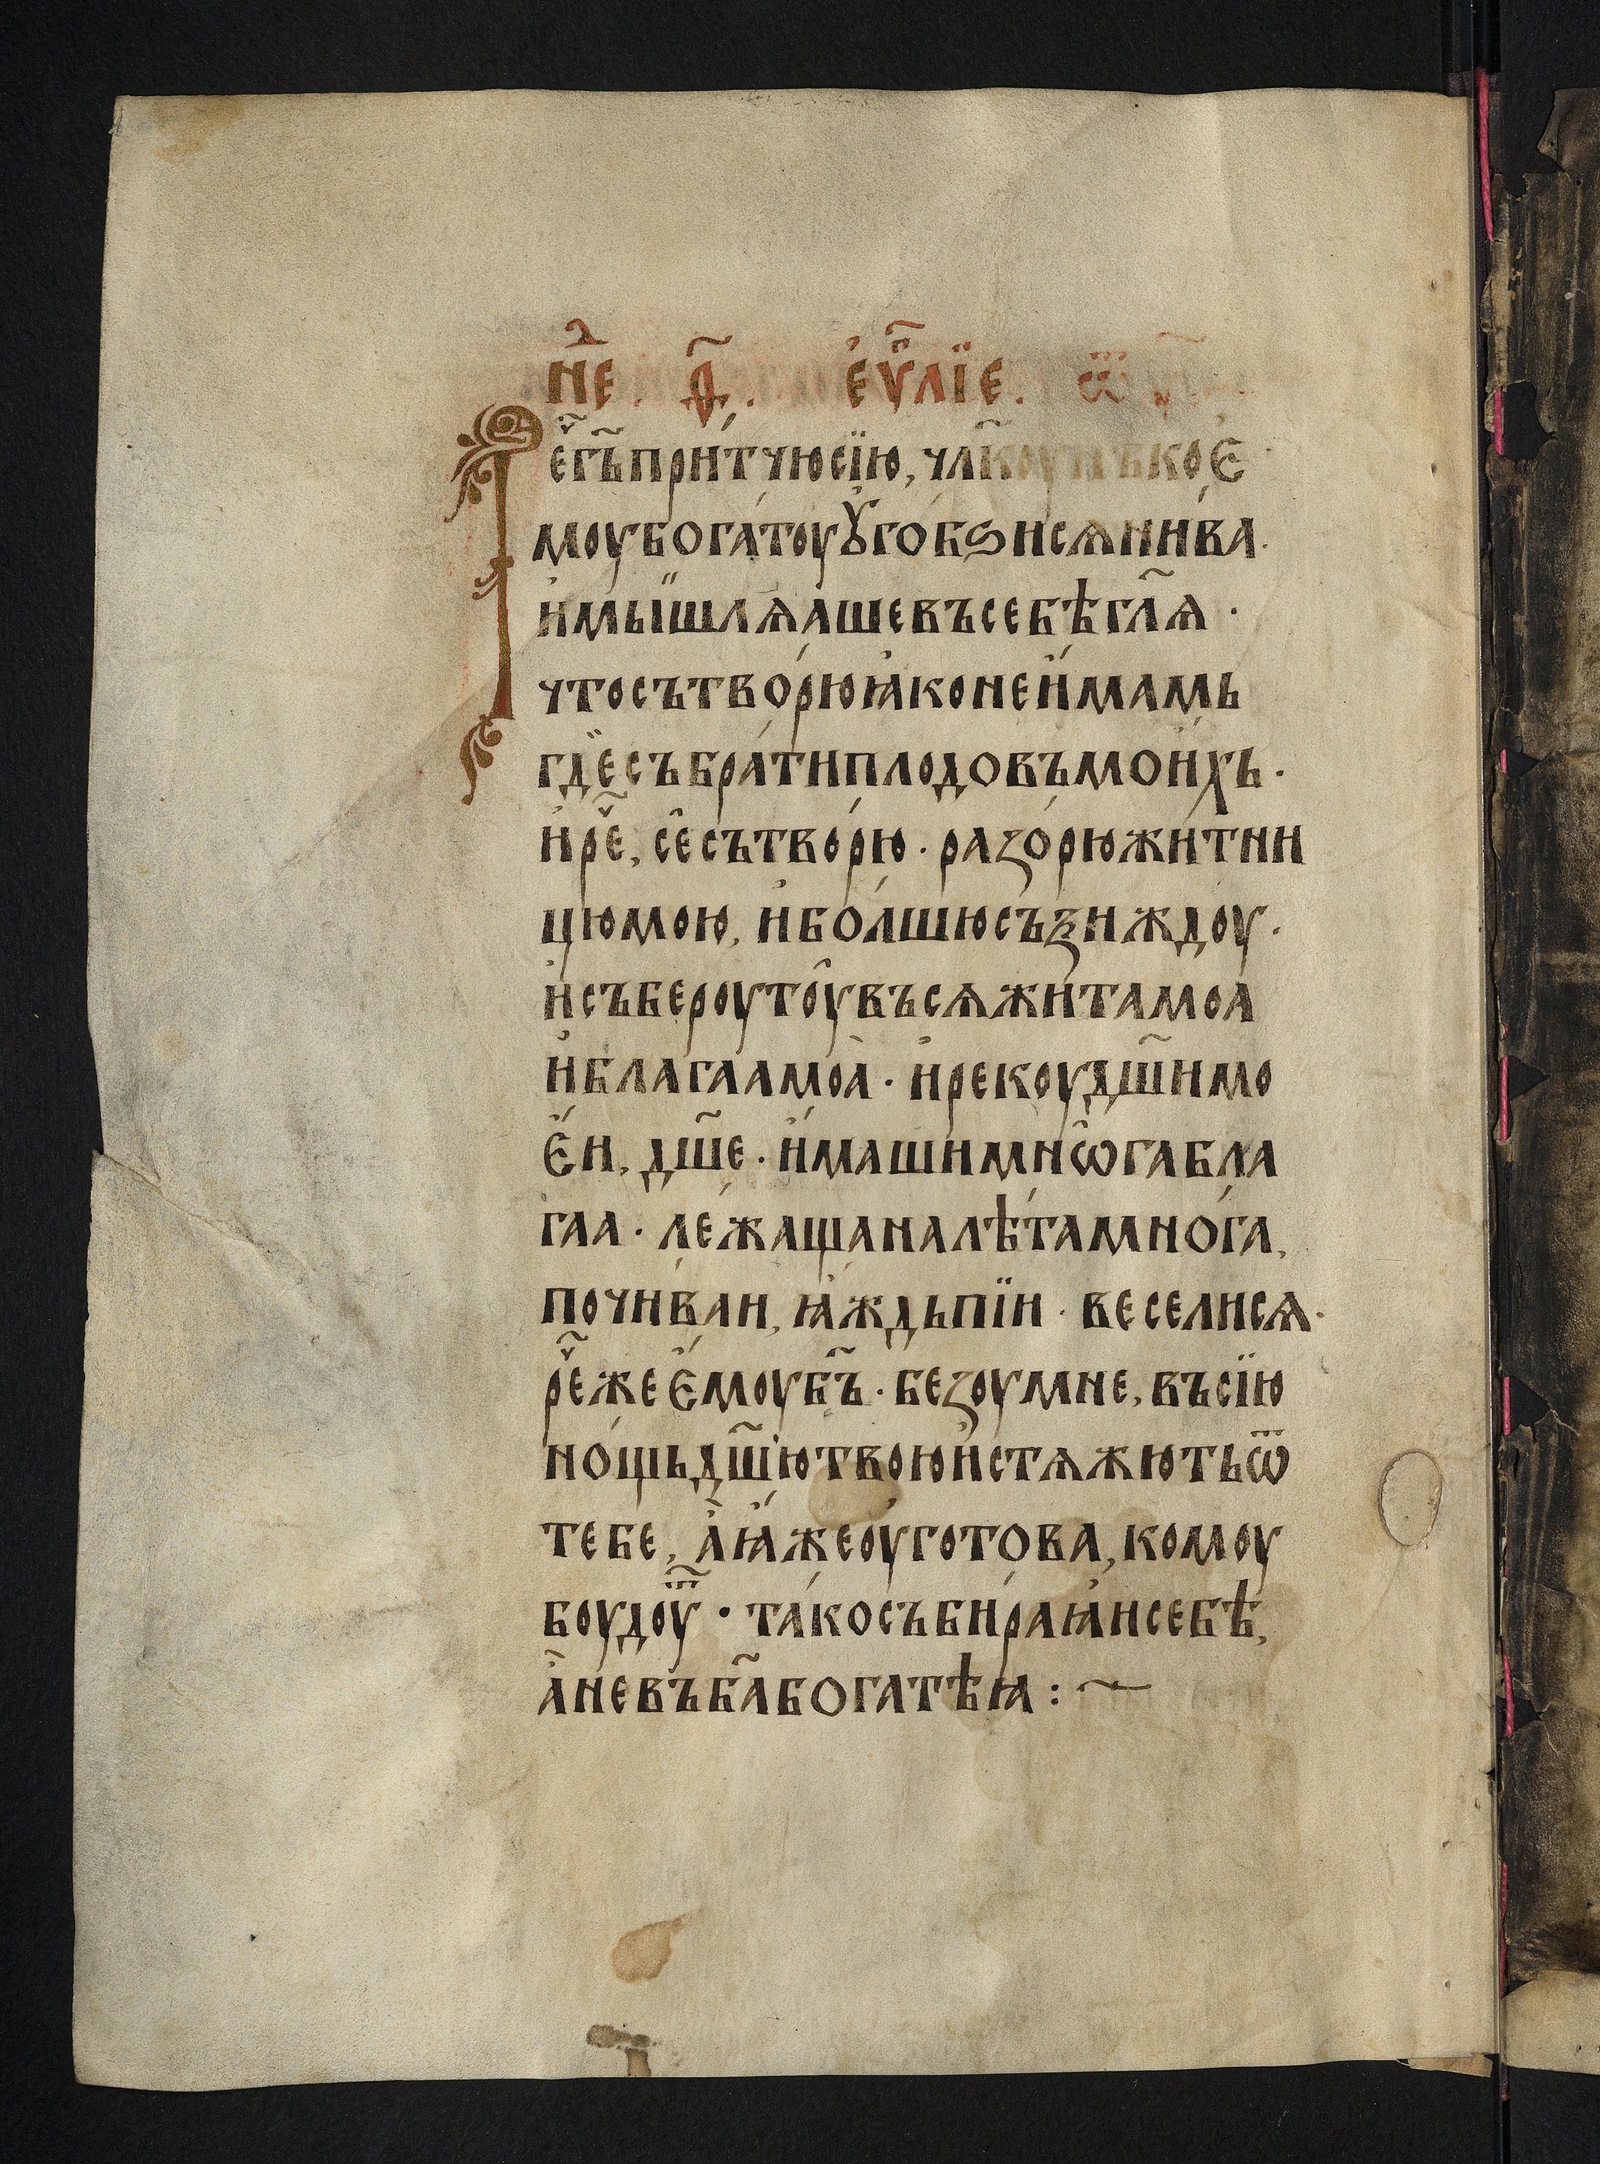 нⷣе . д҃ . є҆ѵⷢ҇лїе . ѿ
Рє҇ г҃ь при́тчю сїю, чл҃коу нѣко́є
моу бога́тоу ꙋ҆гобѕи сѧ ни́ва .
и҆ мы́шлѧаше въ себѣ гл҃ѧ ·
что сътво́рю ꙗ҆ко не и҆́мамь
гдѐ събра́ти плодовъ мои́хь ·
и҆ рє҇, се̑ сътво́рю · разо́рю жи́тни
цю мою, и҆ бо́лшю съзиждоу ·
и҆ събероу тоу̑ въсѧ жи́та моа
и҆ благаа моа̀ · и҆ рекоу дш҃и мо
є҆́и, дш҃е · и҆́маши мнѡ̑га бла
гаа · лежаща на лѣ́та мно́га,
почи́ваи, ꙗ҆́ждь пїи · весели сѧ ·
рє҇ же є҆моу б҃ъ · безоумне, въ сїю
но́щь дш҃ю твою и҆стѧжють ѿ
тебе, а҆̀ ꙗ҆́же оу҆готова, комоу
боудоуⷮ · та́ко събира́ꙗ҆и себѣ,
а҆̀ не въ б҃а богатѣꙗ : ~